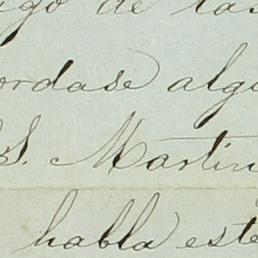 de las
ordase alg
S. Martin
habla este